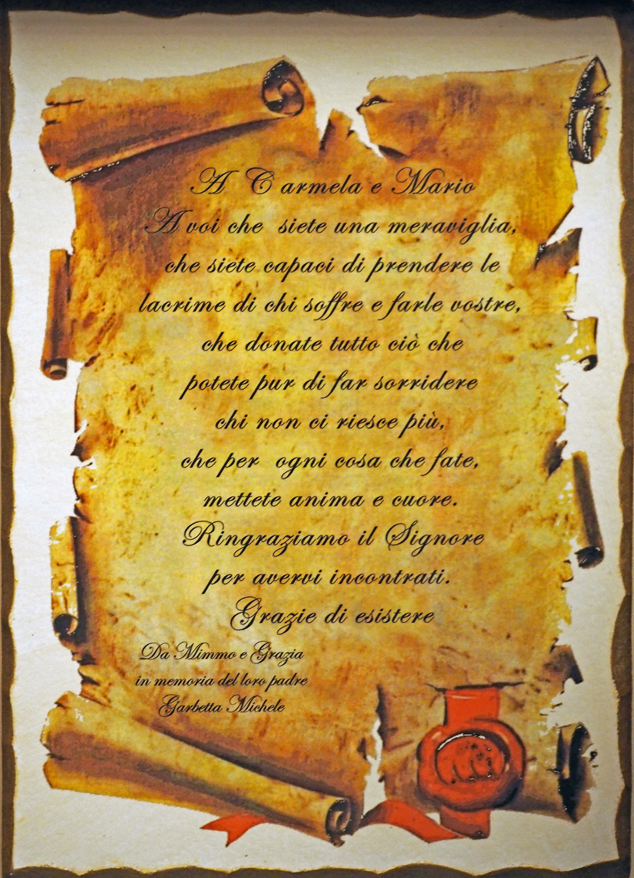 A Carmela e Mario
A voi che siete una meraviglia,
che siete capaci di prendere le
lacrime di chi soffre e farle vostre,
che donate tutto ciò che
potete pur di far sorridere
chi non ci riesce più,
che per ogni cosa che fate,
mettete anima e cuore.
Ringraziamo il Signore
per avervi incontrati.
Grazie di esistere
Da Mimmo e Grazia
in memoria del loro padre
Garbetta Michele